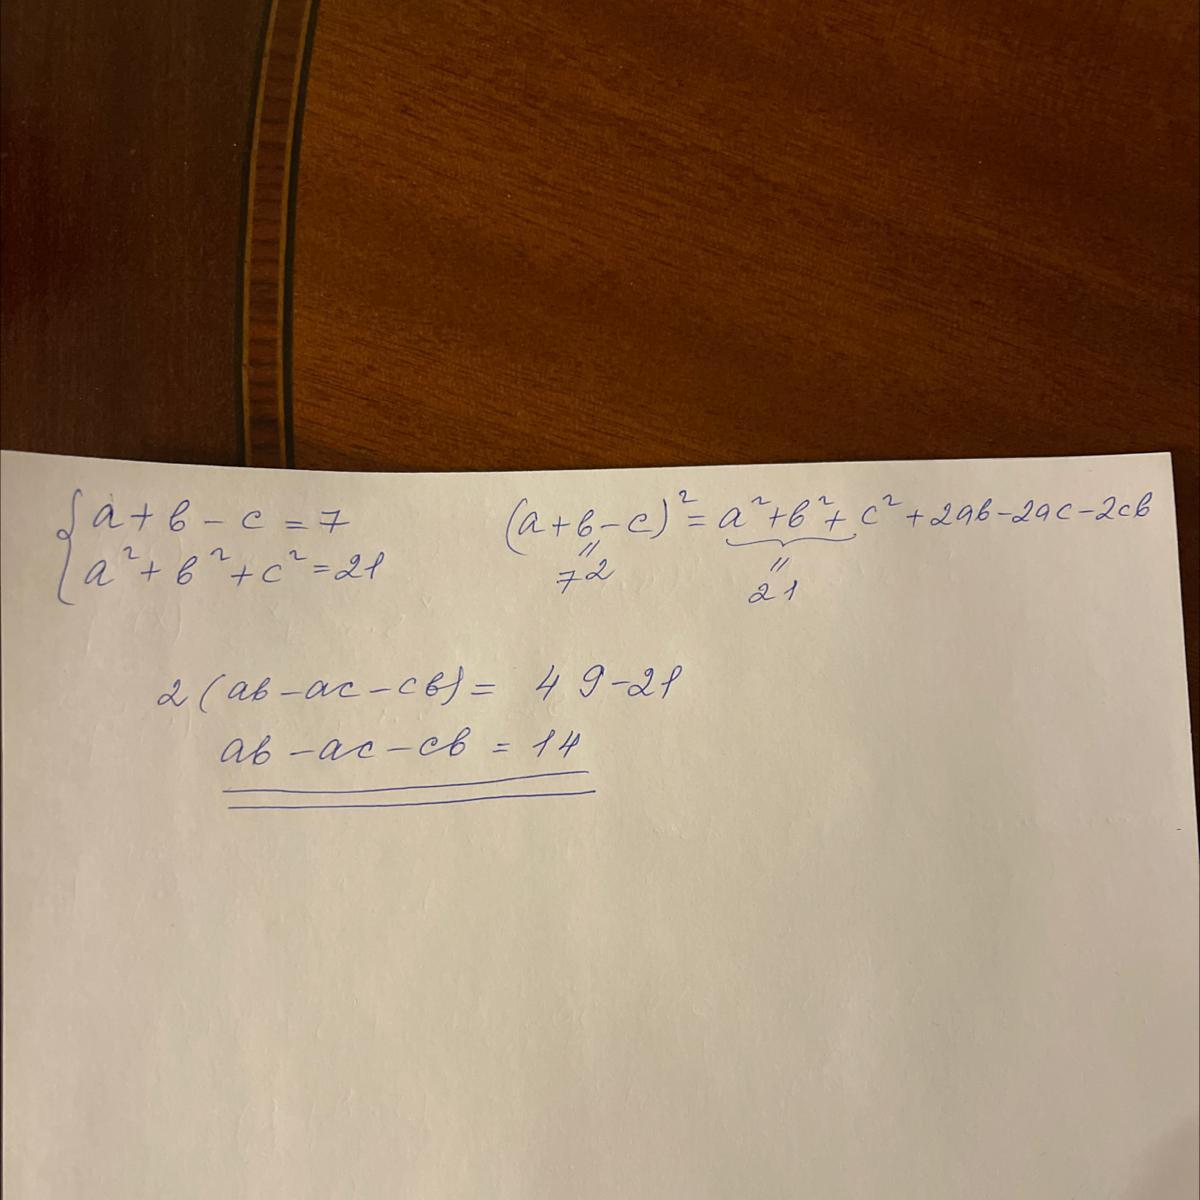 a + b - c = 7
a² + b² + c² = 21
(a+b-c)² = a²+b²+c²+2ab-2ac-2cb
"
7²
"
21
2(ab-ac-cb) = 49-21
ab-ac-cb = 14